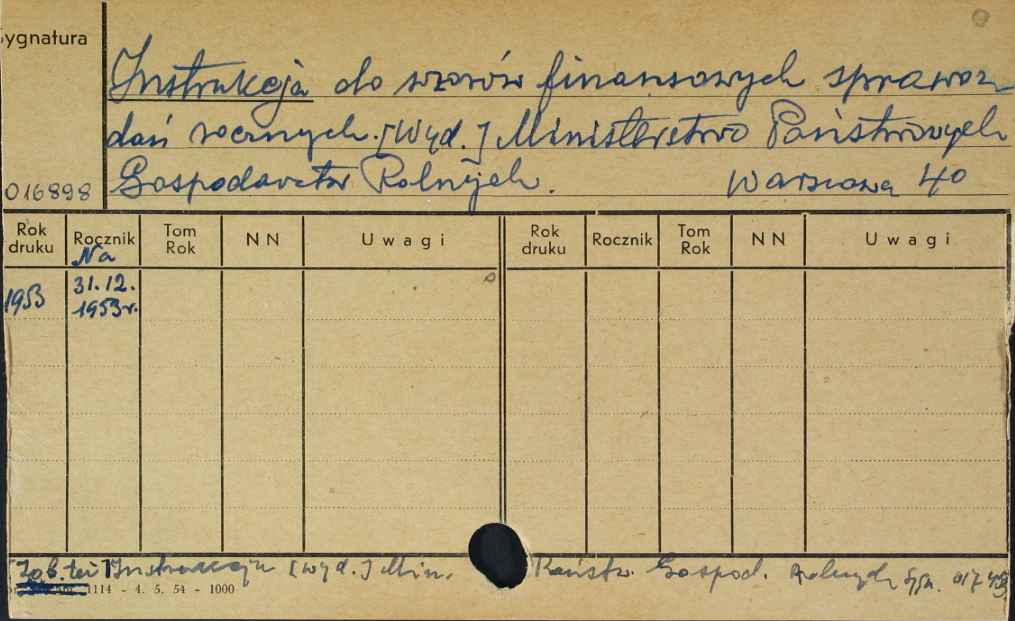 Sygnatura
Instrukcja do wzorów finansowych sprawoz-
dań rocznych. [Wyd.] Ministerstwo Państwowych
016898 Gospodarstw Rolnych. Warszawa 40
Rok druku Rocznik Tom Rok NN Uwagi Rok druku Rocznik Tom Rok NN Uwagi
Na
1953 31.12.
1953r.
Zob. też Instrukcja [wyd.] Min. Państw. Gospod. Rolnych Sygn.
1114 - 4. 5. 54 - 1000